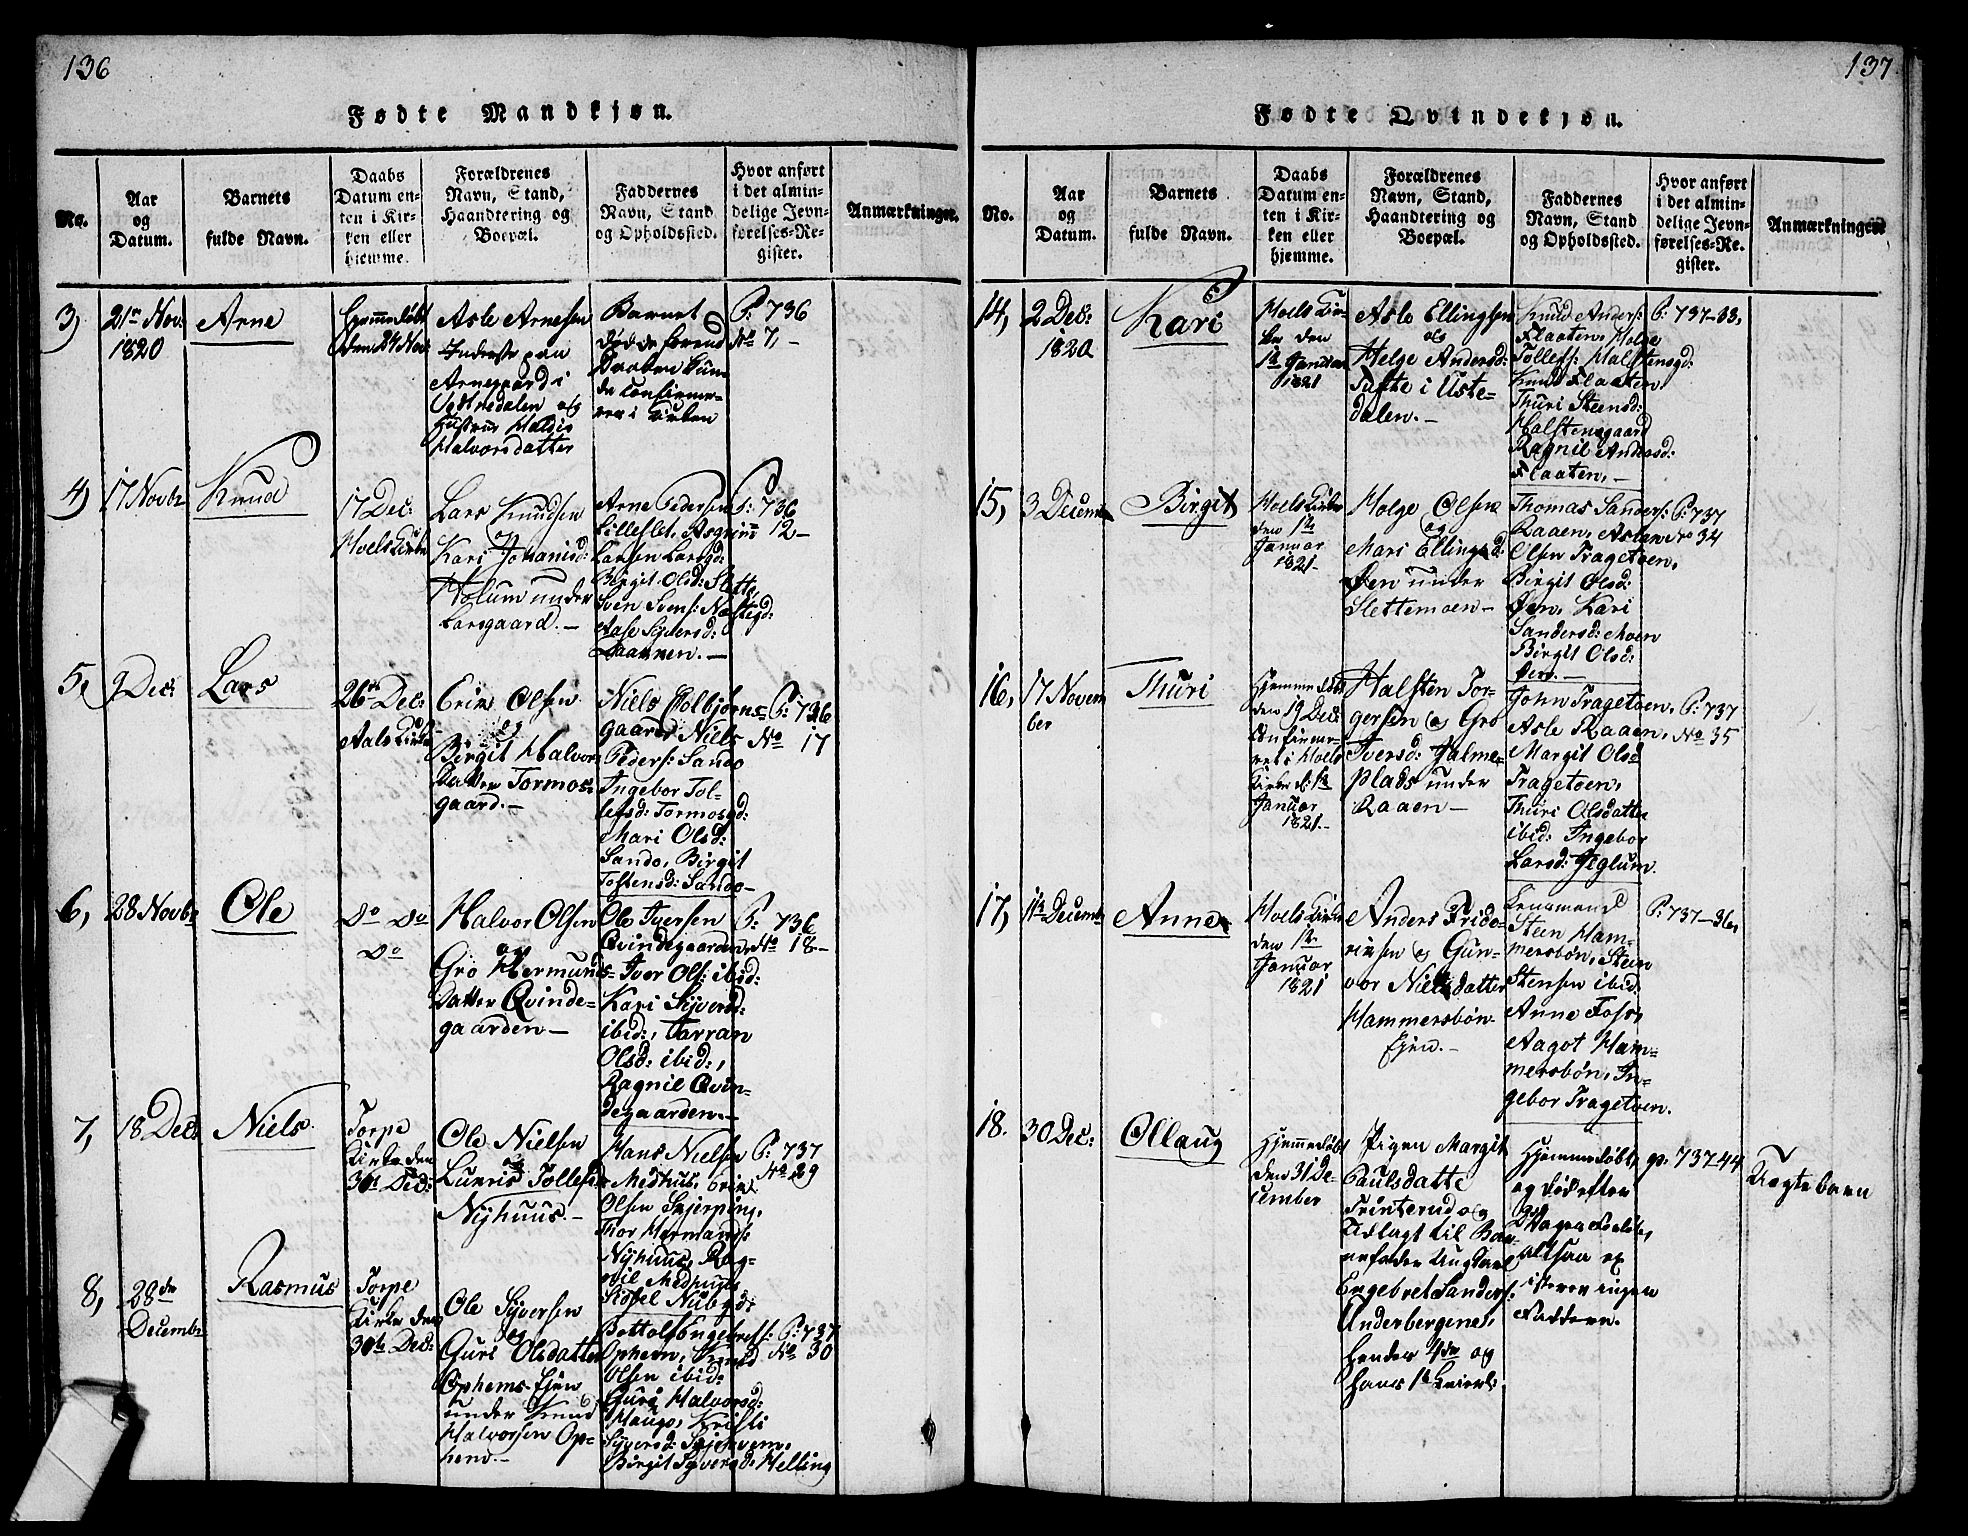 136
Fødte Mandkjøn.
No.
Aar
og
Datum.
Barnets
fulde Navn.
Daabs
Datum en-
ten i Kir-
ken eller
hjemme.
Forældrenes
Navn, Stand,
Haandtering og
Boepæl.
Faddernes
Navn, Stand
og Opholdssted.
Hvor anført
i det almin-
delige Jevn-
førelses-Re-
gister.
Anmærkninger.
3)
21de Nov:
1820
Arne
Hjemmedøbt
den 24 Nov:
Asle Arnesen
Inderste paa
Arnegaard i
Vestredalen og
Hustrue
Halvorsdatter
Barnet
døde førend
Daaben kun-
de confirme-
res i Kirken
P: 736
No 7,-
4)
17 Novbr
Knud
17 Dec:
Hoels Kirke
Lars Knudsen
og
Kari Johannisd:
Holum under
Larsgaard.-
Arne Pedersen
Lilleslet, Asgrim
Larsen Larsgd:
Birgit Olsd: Slette,
Sven Svens: Næstegd:
Aase Siversd:
P: 736
12-
5,
9 Dec:
Lars
26de Dec:
Aals Kirke
Erik Olsen
og
Birgit Halvors
Datter Tormos-
gaard.-
Niels Tolbjørns-
gaard, Niels
Peders: Sando
Ingebor Tol-
lefsd: Tormosgd:
Mari Olsd:
Sando, Birgit
Tostensd: Sando-
P: 736
No 17
6,
28 Novbr
Ole
Do Do
Do
Halvor Olsen
og
Gro Hermunds-
Datter Qvinde-
gaarden-
Ole Iversen
Qvindegaarden,
Iver Ols: ibid:
Kari Sijversd:
ibid:, Jarran
Olsd: ibid:,
Ragnil Qvin-
degaarden.-
P: 736
No 18-
7,
18 Dec:
Niels
Torpe
Kirke den
30te Dec:
Ole Nielsen
og
Tollefsd:
Nijhuus.-
Hans Nielsen
Medhus, Erik
Olsen Skjerping,
Thor Hermands:
Nijhuus, Rag-
nil Medhuus
P: 737
No 29
8,
28de
Decembr
Rasmus
Torpe
Kirke den
30te Dec:
Ole Sijversen
og
Guri Olsdatter
Ophems-Ejen
under Knud
Halvorsen Op-
hem.-
Bottolf Engebretss:
Ophem, Knud
Olsen ibid:
Guri Halvorsd:
Haugo, Kristi
Sijversd:
Birgit Sijversd: Helling
P: 737
No 30
137
Fødte Qvindekjøn.
No.
Aar
og
Datum.
Barnets
fulde Navn.
Daabs
Datum en-
ten i Kir-
ken eller
hjemme.
Forældrenes
Navn, Stand,
Haandtering og
Boepæl.
Faddernes
Navn, Stand
og Opholdssted.
Hvor anført
i det almin-
delige Jevn-
førelses-Re-
gister.
Anmærkninger.
14,
2 Dec:
1820
Kari
Hoels Kir-
ke den
1te Januar
1821
Asle Ellingsen
og
Helge Andersd:
Tufte i Uste-
dalen.-
Knud Anders:
Flaaten, Holge
Tollefs: Halstensgd:
Knud Flaaten,
Thuri Steensd:
Halstensgaard
Ragnil Andersd:
Flaaten.-
P: 737-33,
15,
3 Decemb
Birgit
Hoels Kirke
den 1te
Januar
1821-
Holge Olsen
og
Mari Ellingsd:
Øen under
Slettemoen-
Thomas Sanders:
Raaen, Aslak
Olsen Trageton,
Birgit Olsd:
Øen, Kari
Sandersd: Moen
Birgit Olsd:
Øen.-
P: 737
No 34
16,
17 Novem
ber
Thuri
Hjemmedøbt
den 19 Dec:
confirme-
ret i Hoels
Kirke d: 1te
Januar
1821.-
Halsten Tor-
gersen og Gro
Iversd: Hølme-
plads under
Raaen-
John Tragetoen,
Asle Raaen,
Margit Olsd
Tragetoen,
Thuri Olsdatter
ibid: Ingebor
Larsd: Jeglum.
P: 737
No 35
17,
11te Decemb
Anne
Hoels Kirke
den 1te
Januar
1821
Anders Frido-
riksen og Gun-
vor Nielsdatter
Hammersbøn-
Ejen.-
Lensmand
Steen Ham-
mersbøn, Steen
Stensen ibid:
Anne Foss,
Aagot Ham-
mersbøn, In-
gebor Tragetoen.
P: 737-36,
18.
30 Dec:
Ollaug
Hjemmedøbt
den 31 De-
cember
Pigen Margit
Paulsdatter
Trinterud og
Udlagt til Bar-
nefader Ungkarl
Engebret Sanders:
Underbergene,
hendes 4de og
hans 1te Leierm:
Hjemmedøbt,
og død efter
Dagen
altsaa ex-
isterer ingen
Faddere.
p. 737-44
Uægtebarn